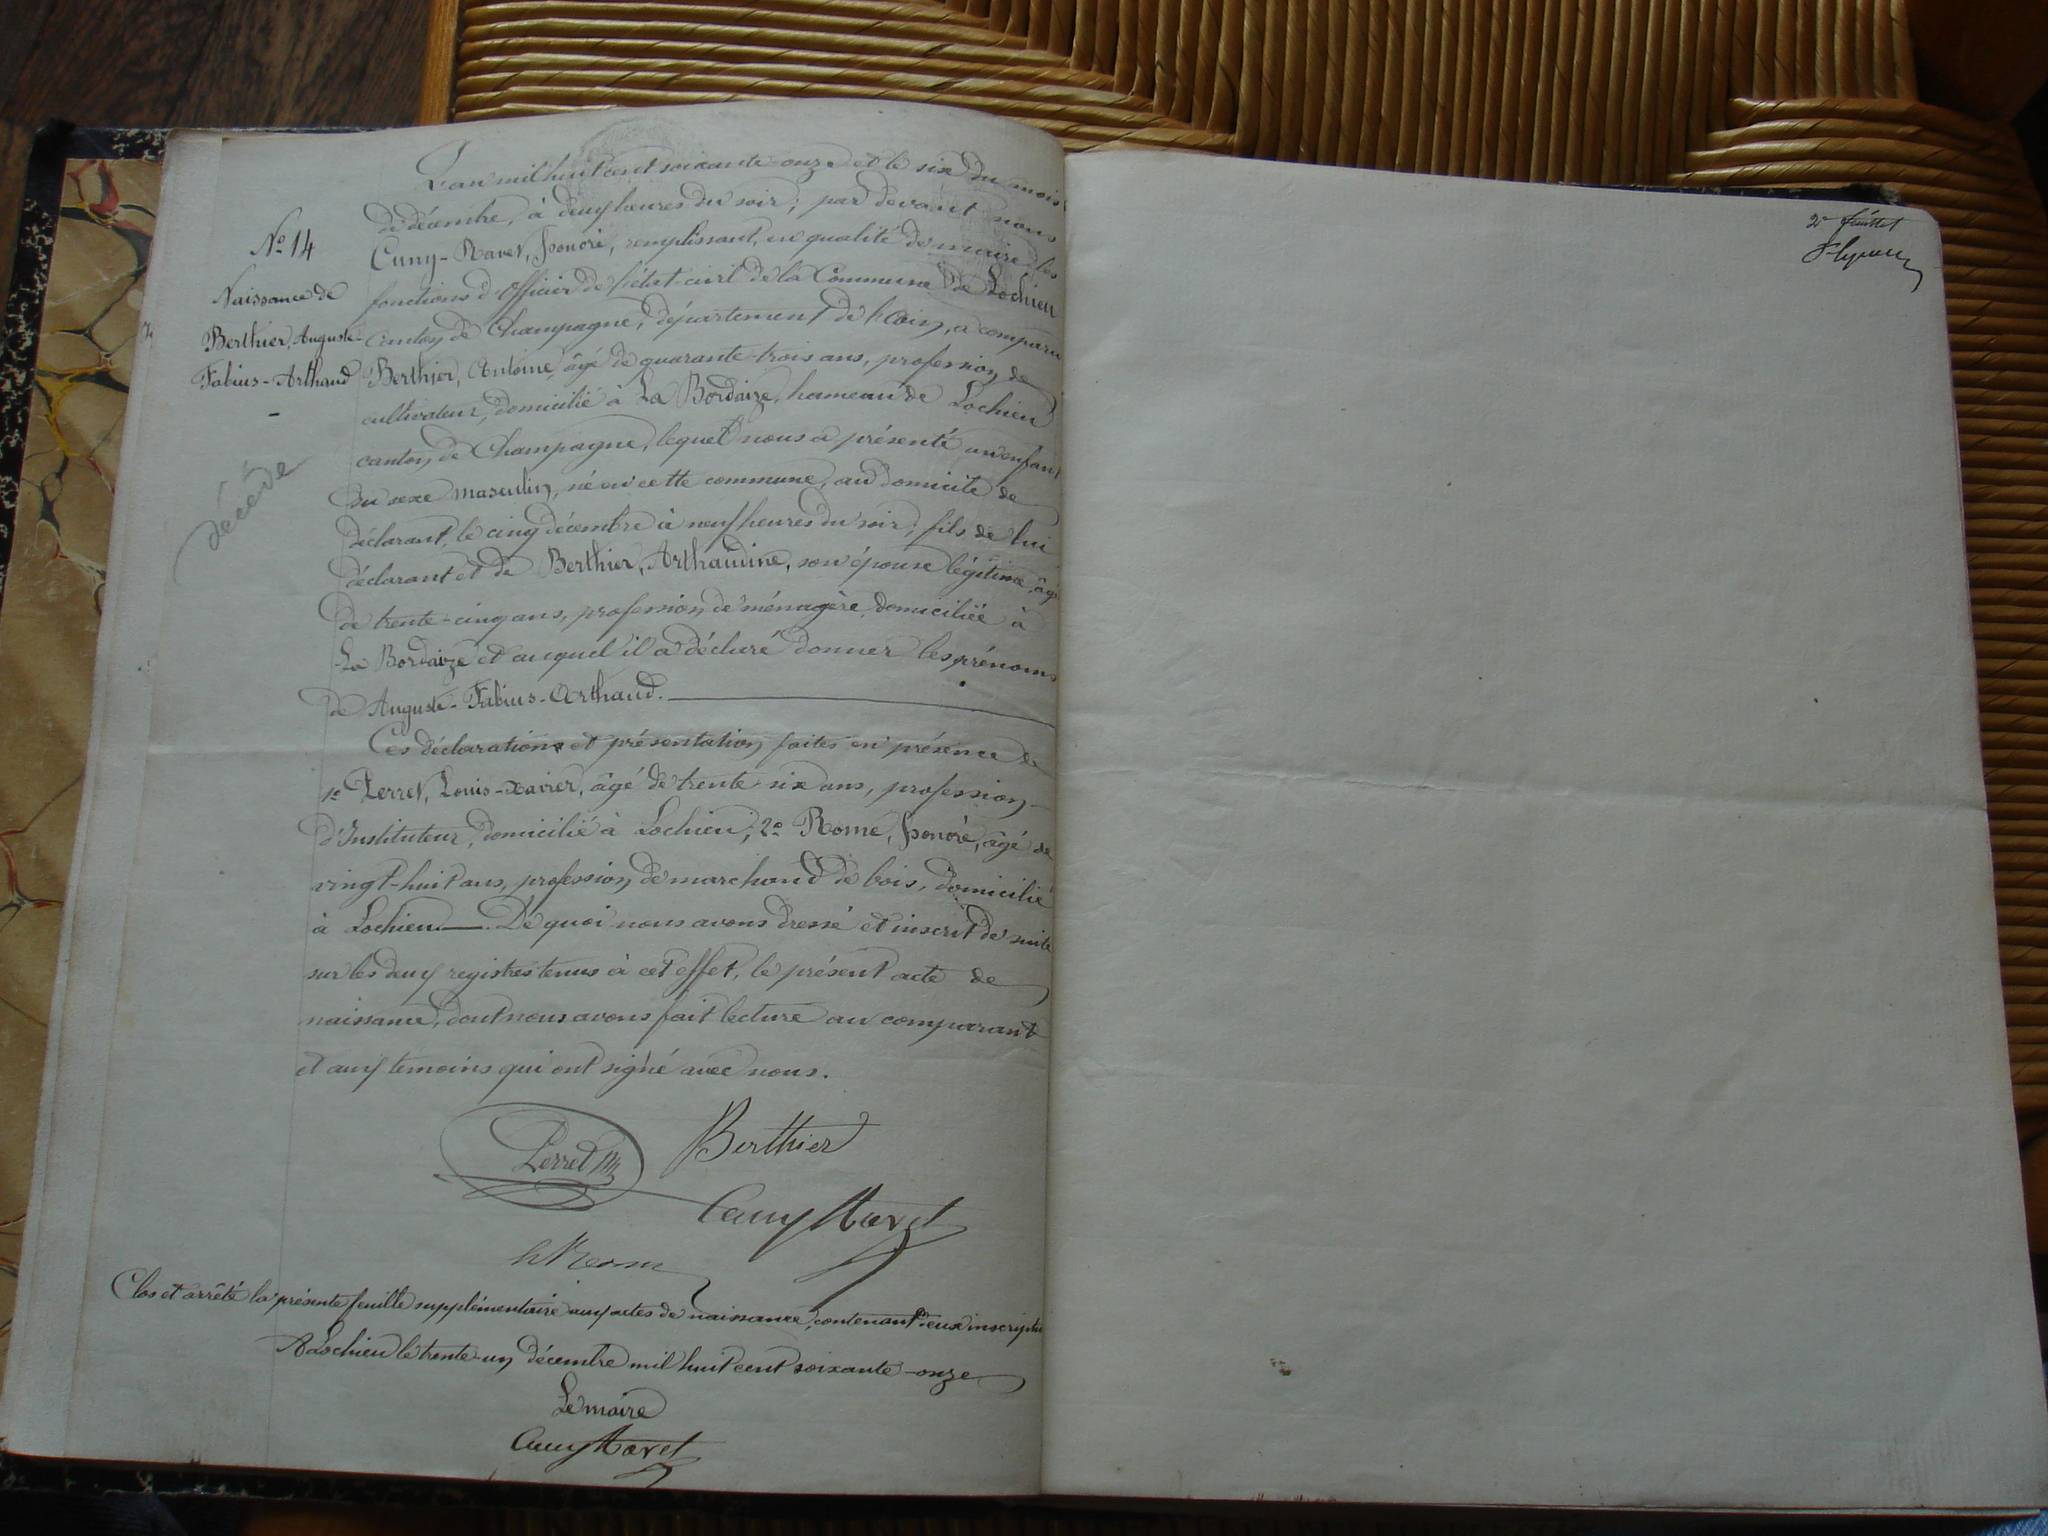 L'an mil huit cent soixante-onze et le six du mois
de décembre, à deux heures du soir; par devant nous
Cuny-Ravet, honoré, remplissant, en qualité de maire, les
fonctions d'Officier de l'état-civil de la Commune de Lochieu
canton de Champagne, département de l'Ain, a comparu
Berthier, Antoine, âgé de quarante-trois ans, profession de
cultivateur, domicilié à La Bordaize, hameau de Lochieu
canton de Champagne, lequel nous a présenté un enfant
du sexe masculin, né en cette commune, au domicile de
déclarant, le cinq décembre à neuf heures du soir; fils de lui
déclarant et de Berthier, Arthaudine, son épouse légitime, âgé
de trente-cinq ans, profession de ménagère, domiciliée à
La Bordaize et auquel il a déclaré donner les prénoms
de Auguste-Fabius-Arthaud.
Ces déclarations et présentation faites en présence de
1º Perret, Louis-Xavier, âgé de trente six ans, profession
d'Instituteur, domicilié à Lochieu; 2º Rome, honoré, âgé de
vingt-huit ans, profession de marchand de bois, domicilié
à Lochieu. De quoi nous avons dressé et inscrit de suite
sur les deux registres tenus à cet effet, le présent acte de
naissance, dont nous avons fait lecture au comparant
et aux temoins qui ont signé avec nous.
Perret Berthier
Cuny Ravet
h Rome
Clos et arrêté la présente feuille supplémentaire aux actes de naissance, contenant deux inscripti
A Lochieu le trente-un décembre mil huit cent soixante-onze
Le maire
Cuny Ravet
Nº 14
Naissance de
Berthier, Auguste-
Fabius-Arthaud
décédé
2e feuillet